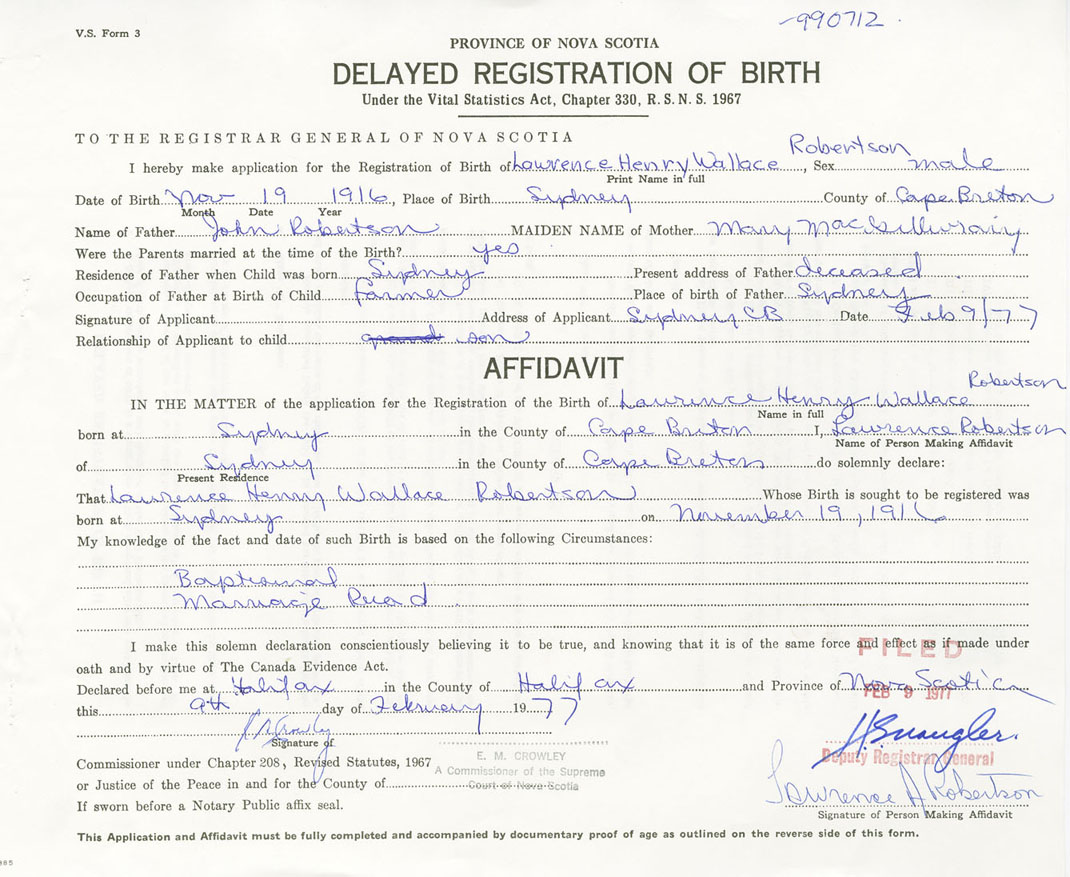 V.S. Form 3
990712
PROVINCE OF NOVA SCOTIA
DELAYED REGISTRATION OF BIRTH
Under the Vital Statistics Act, Chapter 330, R.S.N.S. 1967
TO THE REGISTRAR GENERAL OF NOVA SCOTIA
I hereby make application for the Registration of Birth of Lawrence Henry Wallace Robertson, Sex male
Print Name in full
Date of Birth Nov 19 1916, Place of Birth Sydney County of Cape Breton
Month Date Year
Name of Father John Robertson MAIDEN NAME of Mother Mary MacGillivray
Were the Parents married at the time of the Birth? yes
Residence of Father when Child was born Sydney Present address of Father deceased
Occupation of Father at Birth of Child farmer Place of birth of Father Sydney
Signature of Applicant Address of Applicant Sydney CB Date Feb 9/77
Relationship of Applicant to child son
AFFIDAVIT
IN THE MATTER of the application for the Registration of the Birth of Lawrence Henry Wallace Robertson
Name in full
born at Sydney in the County of Cape Breton I, Lawrence Robertson
Name of Person Making Affidavit
of Sydney in the County of Cape Breton do solemnly declare:
Present Residence
That Lawrence Henry Wallace Robertson Whose Birth is sought to be registered was
born at Sydney on November 19, 1916
My knowledge of the fact and date of such Birth is based on the following Circumstances:
Baptismal
Marriage
I make this solemn declaration conscientiously believing it to be true, and knowing that it is of the same force and effect as if made under
FILED
oath and by virtue of The Canada Evidence Act.
Declared before me at Halifax in the County of Halifax and Province of Nova Scotia
FEB 9 1977
this 9th day of February 1977
Signature of
E. M. CROWLEY
Deputy Registrar General
Commissioner under Chapter 208, Revised Statutes, 1967
A Commissioner of the Supreme
or Justice of the Peace in and for the County of
Court of Nova Scotia
Lawrence A Robertson
If sworn before a Notary Public affix seal.
Signature of Person Making Affidavit
This Application and Affidavit must be fully completed and accompanied by documentary proof of age as outlined on the reverse side of this form.